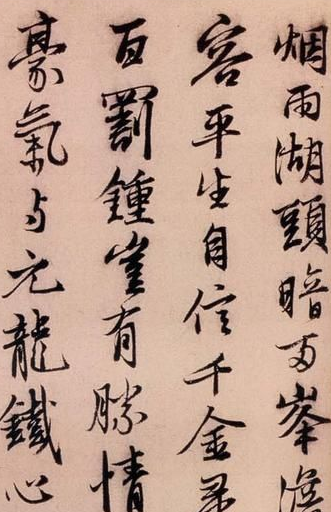 烟雨湖頭暗両峯澹
容平生自信千金
百罰鍾豈有勝情
豪氣与元龍鐵心